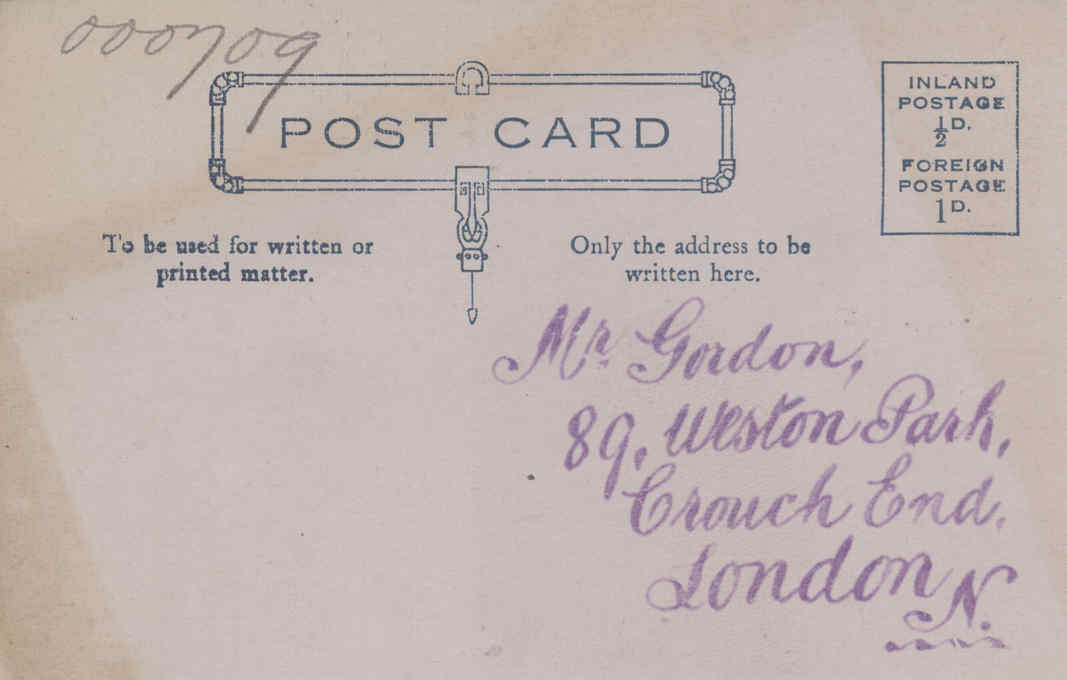 000709
POST CARD
INLAND
POSTAGE
½D.
FOREIGN
POSTAGE
1D.
To be used for written or
printed matter.
Only the address to be
written here.
Mr. Gordon,
89, Weston Park,
Crouch End.
London N.